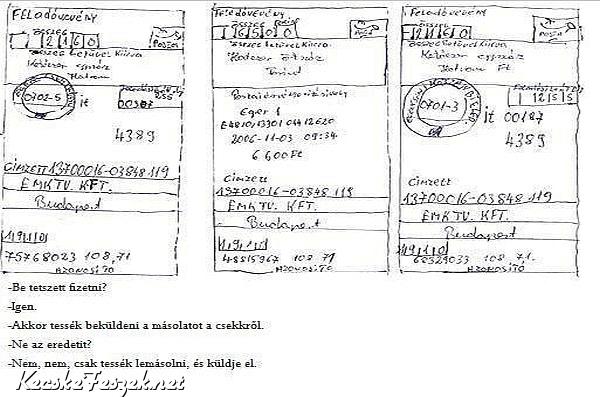 Feladóvevény
összeg
2160
Posta
összeg betűvel kiírva
Kétezer egyszáz
Hatvan
0702-5
it
00387
4389
Címzett 13700016-03848119
ÉMKTV. KFT.
Budapest
75768023 108,71
AZONOSÍTÓ
Feladóvevény
összeg
6600
Posta
összeg betűvel kiírva
Hatezer hatszáz
Forint
Eger 1
2006-11-03 09:34
6 600 Ft
Címzett
13700016-03848 119
ÉMKTV. KFT.
Budapest
48815967 108 71
AZONOSÍTÓ
Feladóvevény
összeg
2160
Posta
összeg betűvel kiírva
Kétezer egyszáz
Hatvan Ft
1255
0701-3
it 00187
4389
Címzett
13700016-03848 119
ÉMKTV. KFT.
Budapest
68329033 108,71.
AZONOSÍTÓ
-Be tetszett fizetni?
-Igen.
-Akkor tessék beküldeni a másolatot a csekkről.
-Ne az eredetit?
-Nem, nem, csak tessék lemásolni, és küldje el.
KecskeFeszek.net